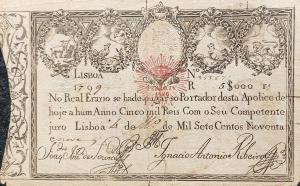 LISBOA Nº
1799 R 5$000 Rs
No Real Erario se hade pagar ao Portador desta Apolice de
hoje a hum Anno Cinco mil Reis Com o Seu Competente
juro Lisboa de de Mil Sete Centos Noventa
e nove
Ignacio Antonio Ribeiro